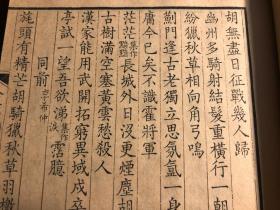 胡無盡日征戰幾人歸
幽州多騎射結髮重橫行一朝
紛獵秋草相向角弓鳴
薊門逢古老獨立思氛氳一身
庸今已矣不識霍將軍
茫茫集作黯黯長城外日沒更煙塵胡
古樹滿空塞黃雲愁殺人
漢家能用武開拓窮異域戍卒
亭試一望吾欲涕集作淚霑臆
同前李希仲
旄頭有精芒胡騎獵秋草羽檄